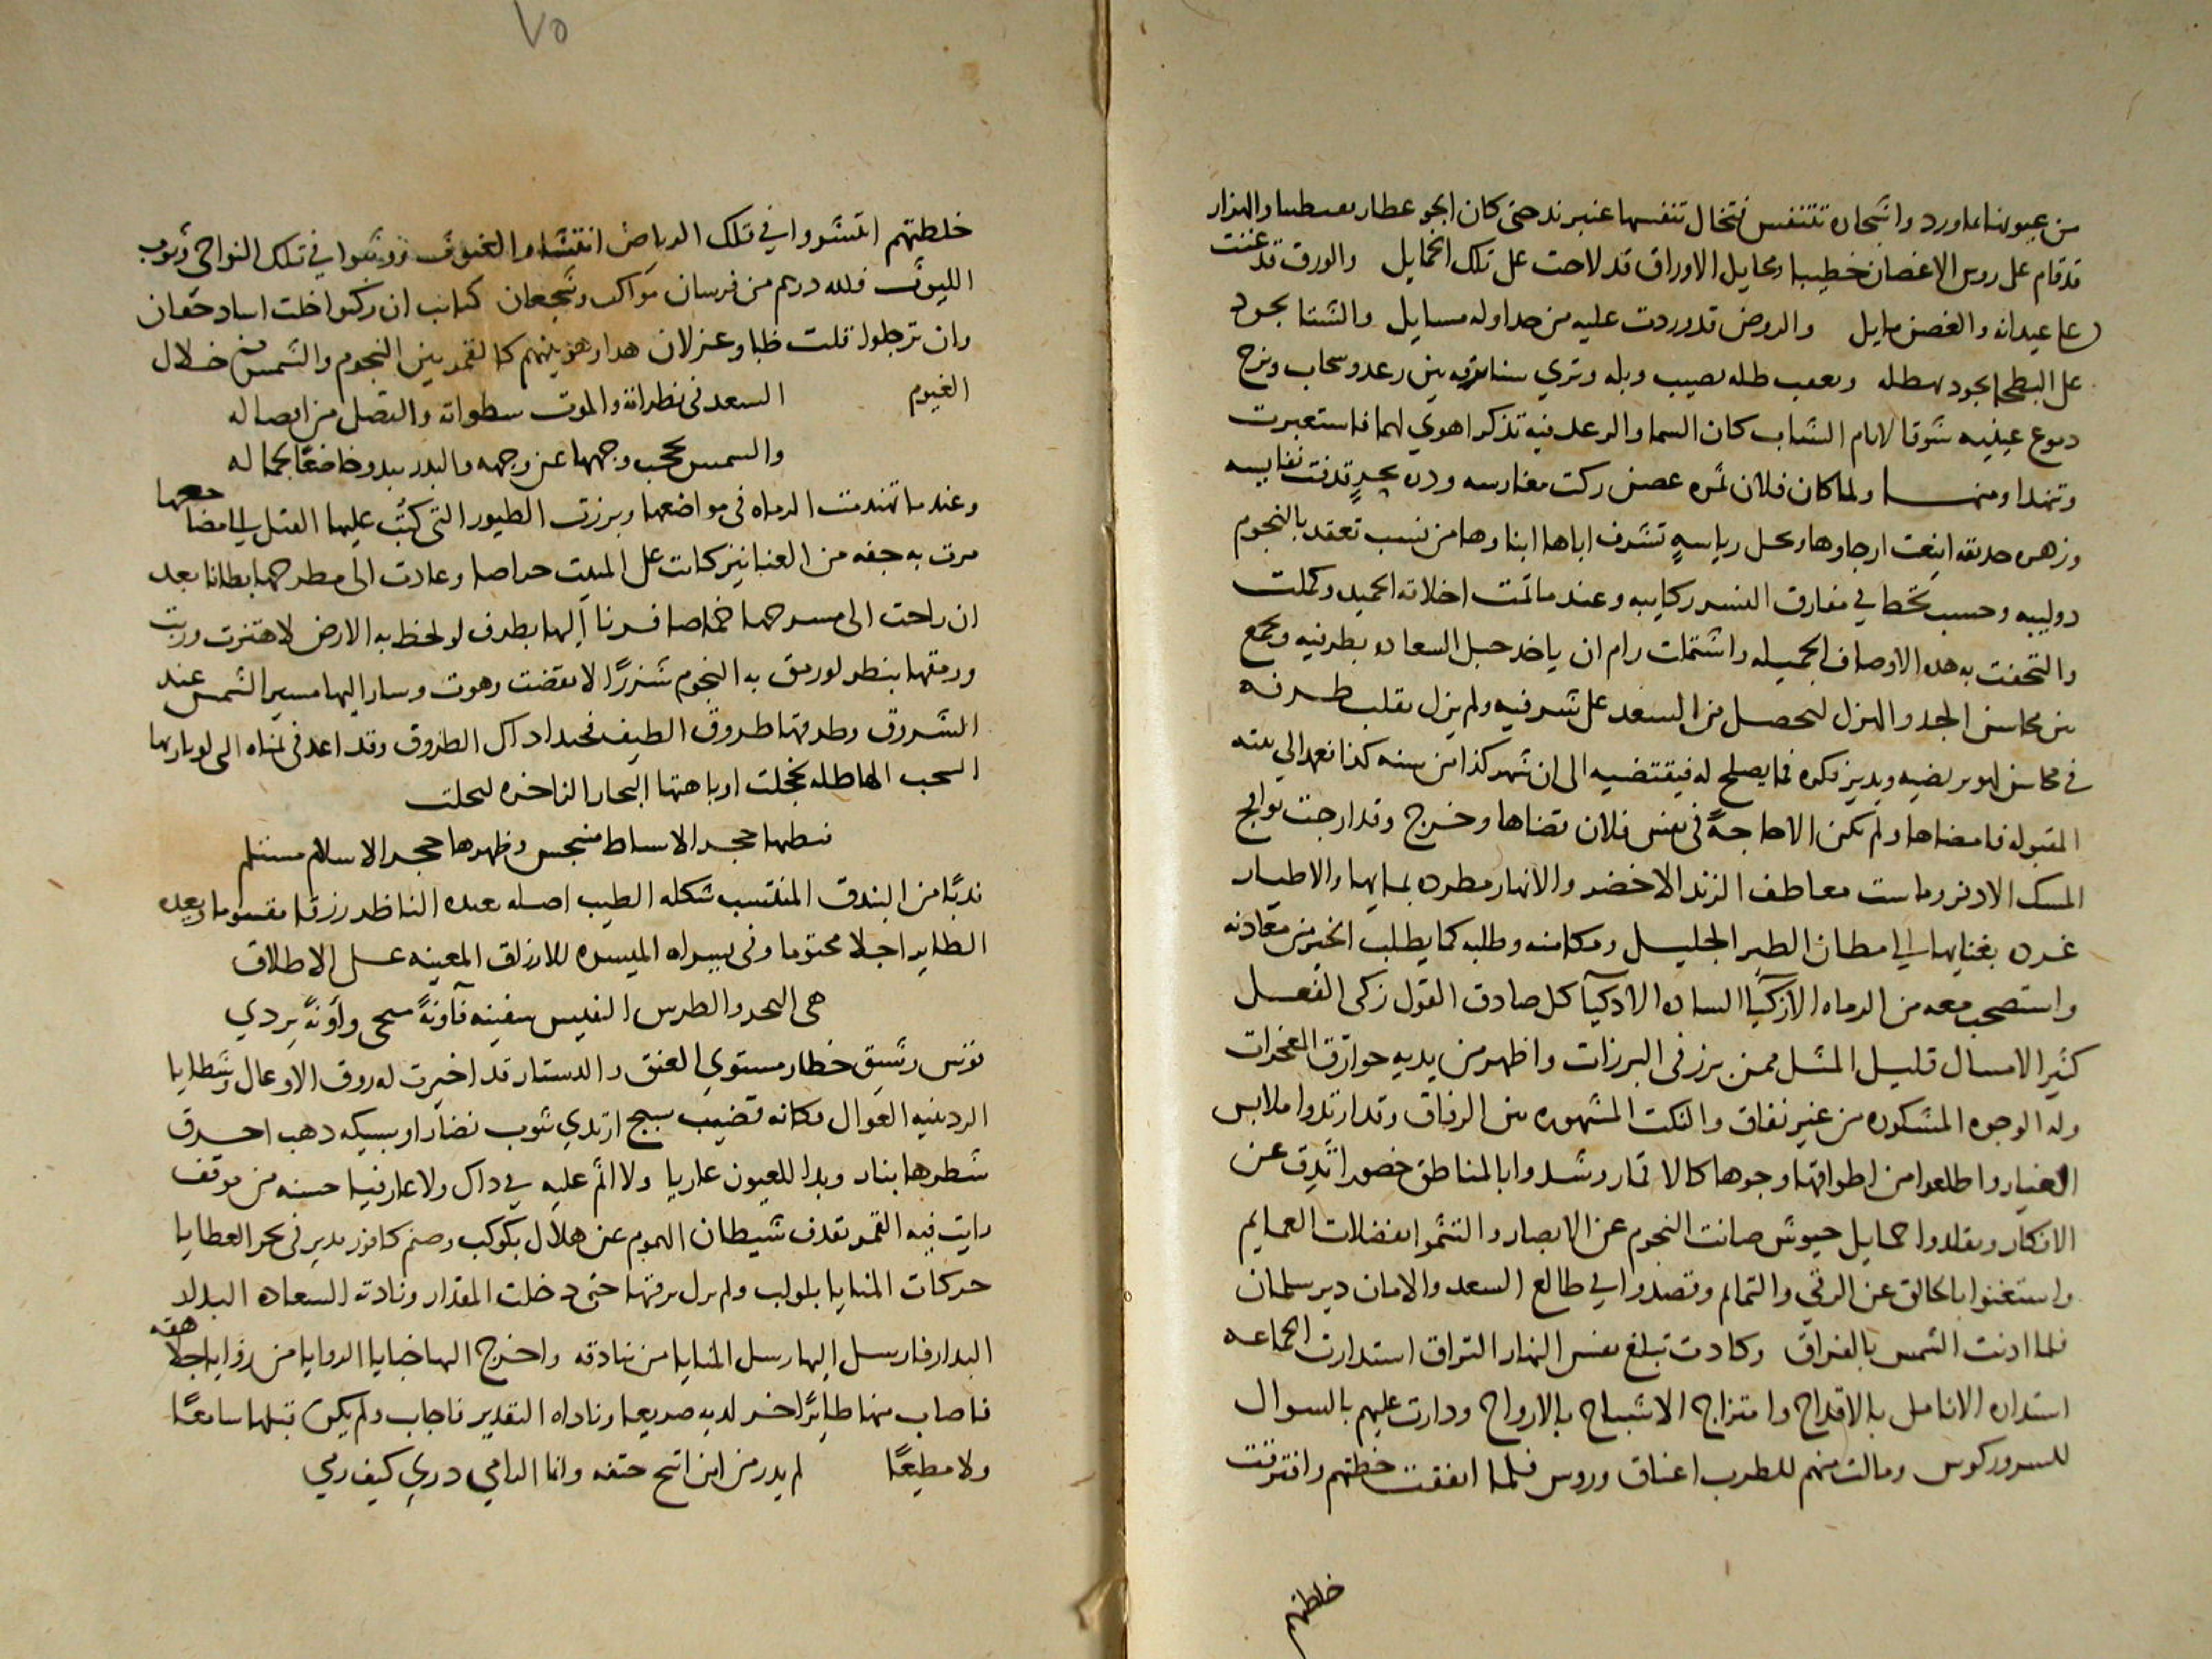 من عيونها ماورد واشجاره تتنفس فتخال تنفسها عنبر ند حتى كان الجو عطار والهزار
قد قام على روس الاغصان خطيبا ومخايل الاوراق قد لاحت على تلك الخمايل والورق قد غنت
على عيدانه والغصن مايل والروض قد وردت عليه من جداوله مسايل والشتا بجود
على البطحا بجود بهطله ويعقب طله بصيب وبله وتري سنا برقه بين رعد وسحاب ونزح
دموع عينيه شوقا لايام الشباب كان السما والرعد فيه تذكرا هوي لهما فاستعبرت
وتنهدا ومنها ولما كان فلان ثمره غصن زكت مغارسه ودره بحر قذفت نفايسه
وزهره حديقه اينعت ارجاوها ومحل رياسه تشرف اباها ابناوها من نسب تعقد بالنجوم
دوايبه وحسب تخطا في مفارق النسر ركايبه وعندما تمت اخلاقه الحميده وكملت
والتحفت به هذه الاوصاف الجميله واشتملت رام ان ياخد حبل السعاده بطرفيه ويجمع
بين محاسن الجد والهزل ليحصل من السعد على شرفيه ولم يزل يقلب طرفه
في محاسن لهو يرتضيه ويدير فكره فما يصلح له فيقتضيه الى ان شهر كذا من سنه كذا نعهد الى نيته
المقبوله فامضاها ولم تكن الا حاجةً في نفس فلان قضاها وخرج وقد ارجت نوافج
المسك الادفر وماست معاطف الزند الاخضر والانهار مطرده بمايها والاطيار
غرده بغنايها الي امطان الطير الجليل ومكامنه وطلبه كما يطلب الخير من معادنه
واستصحب معه من الرماه الازكيا الساده الاذكيا كل صادق القول زكى الفعل
كثير الامسال قليل المثل ممن برز في البرزات واظهر من يديه خوارق المعجزات
وله الوجوه المشكوره من غير نفاق والنكت المشهوره بين الرفاق وقد ارتدوا ملابس
الغيار واطلعوا من اطواقها وجوها كالاقمار وشدوا بالمناطق خصورا تدق عن
الافكار وتقلدوا حمايل جيوش صانت النجوم عن الابصار والتثموا بفضلات العمايم
واستغنوا بالخالق عن الرقي والتمايم وقصدوا في طالع السعد والامان دير سلمان
فلما اذنت الشمس بالفراق وكادت تبلغ نفس النهار التراق استدارت الجماعه
استداره الانامل بالاقداح وامتزاج الاشباح بالارواح ودارت عليهم بالسوال
للسرور كوس ومالت منهم للطرب اعناق وروس فلما اتفقت خطتهم وافترقت
خلطتهم
٧٥
خلطتهم انتشروا في تلك الرياض انتشار الغيوث ووثبوا في تلك النواحي وثوب
الليوث فلله درهم من فرسان مواكب وشجعان كتايب ان ركبوا خلت اساد خفان
وان ترجلوا قلت ظبا وغزلان هدا وهو بينهم كالقمر بين النجوم والشمس من خلال
الغيوم السعد في نظراته والموت سطواته والتصل من ايصاله
والشمس تحجب وجهها عن وجهه والبدر يبدو خاضعًا بجماله
وعندما تقدمت الرماه في مواضعها وبرزت الطيور التي كتب عليها القتل الي مضاجعها
مرت به جفه من العنانيز كانت على المبيت حراصا وعادت الى مطرحها بطانا بعد
ان راحت الى مسرحها خماصا فرنا اليها بطرف لو لحظ به الارض لاهتزت وربت
ورمقها بنظر لو رمق به النجوم شزرًا لانقضت وهوت وسار اليها مسير الشمس عند
الشروق وطرقها طروق الطيف فحبذا داك الطروق وقد اعد في يمناه التي لو باراها
السحب الهاطله لخجلت او باهتها البحار الزاخره لبخلت
فبطنها حجر الاساط منبجس وظهرها حجر الاسلام مستلم
ندبًا من البندق المنتسب شكله الطيب اصله يعده الناظر رزقا مقسوما ويعده
الطاير اجلا محتوما وفي يسراه الميسره للارزاق المعينه على الاطلاق
هي البحر والطرس النفيس سفينه فآونةً تنجي وآونةً يردي
قوس رشيق خطار مستوي العنق والدستار قد اختيرت له روق الاوعال وشظايا
الردينيه العوال فكانه قضيب سبج ارتدي بثوب نضار او سبيكه دهب احرق
شطرها بنار وبدا للعيون عاريا ولا اثم عليه في داك ولا عار فيا حسنه من موقف
رايت فيه القمر يقذف شيطان الهموم عن هلال بكوكب وصنم كافور يدير في بحر العطايا
حركات المنايا بلولب ولم يزل يرقبها حتى دخلت المقدار ونادته السعاده البدار
البدار فارسل اليها رسل المنايا من بنادقه واخرج الها خبايا الروايا من زوايا جلاهقه
فاصاب منها طايرًا خر لديه صريعا وناداه التقدير فاجاب ولم يكن قبلها سامعًا
ولا مطيعًا لم يدر من اين اتيح حتفه وانما الرامي دري كيف رمي